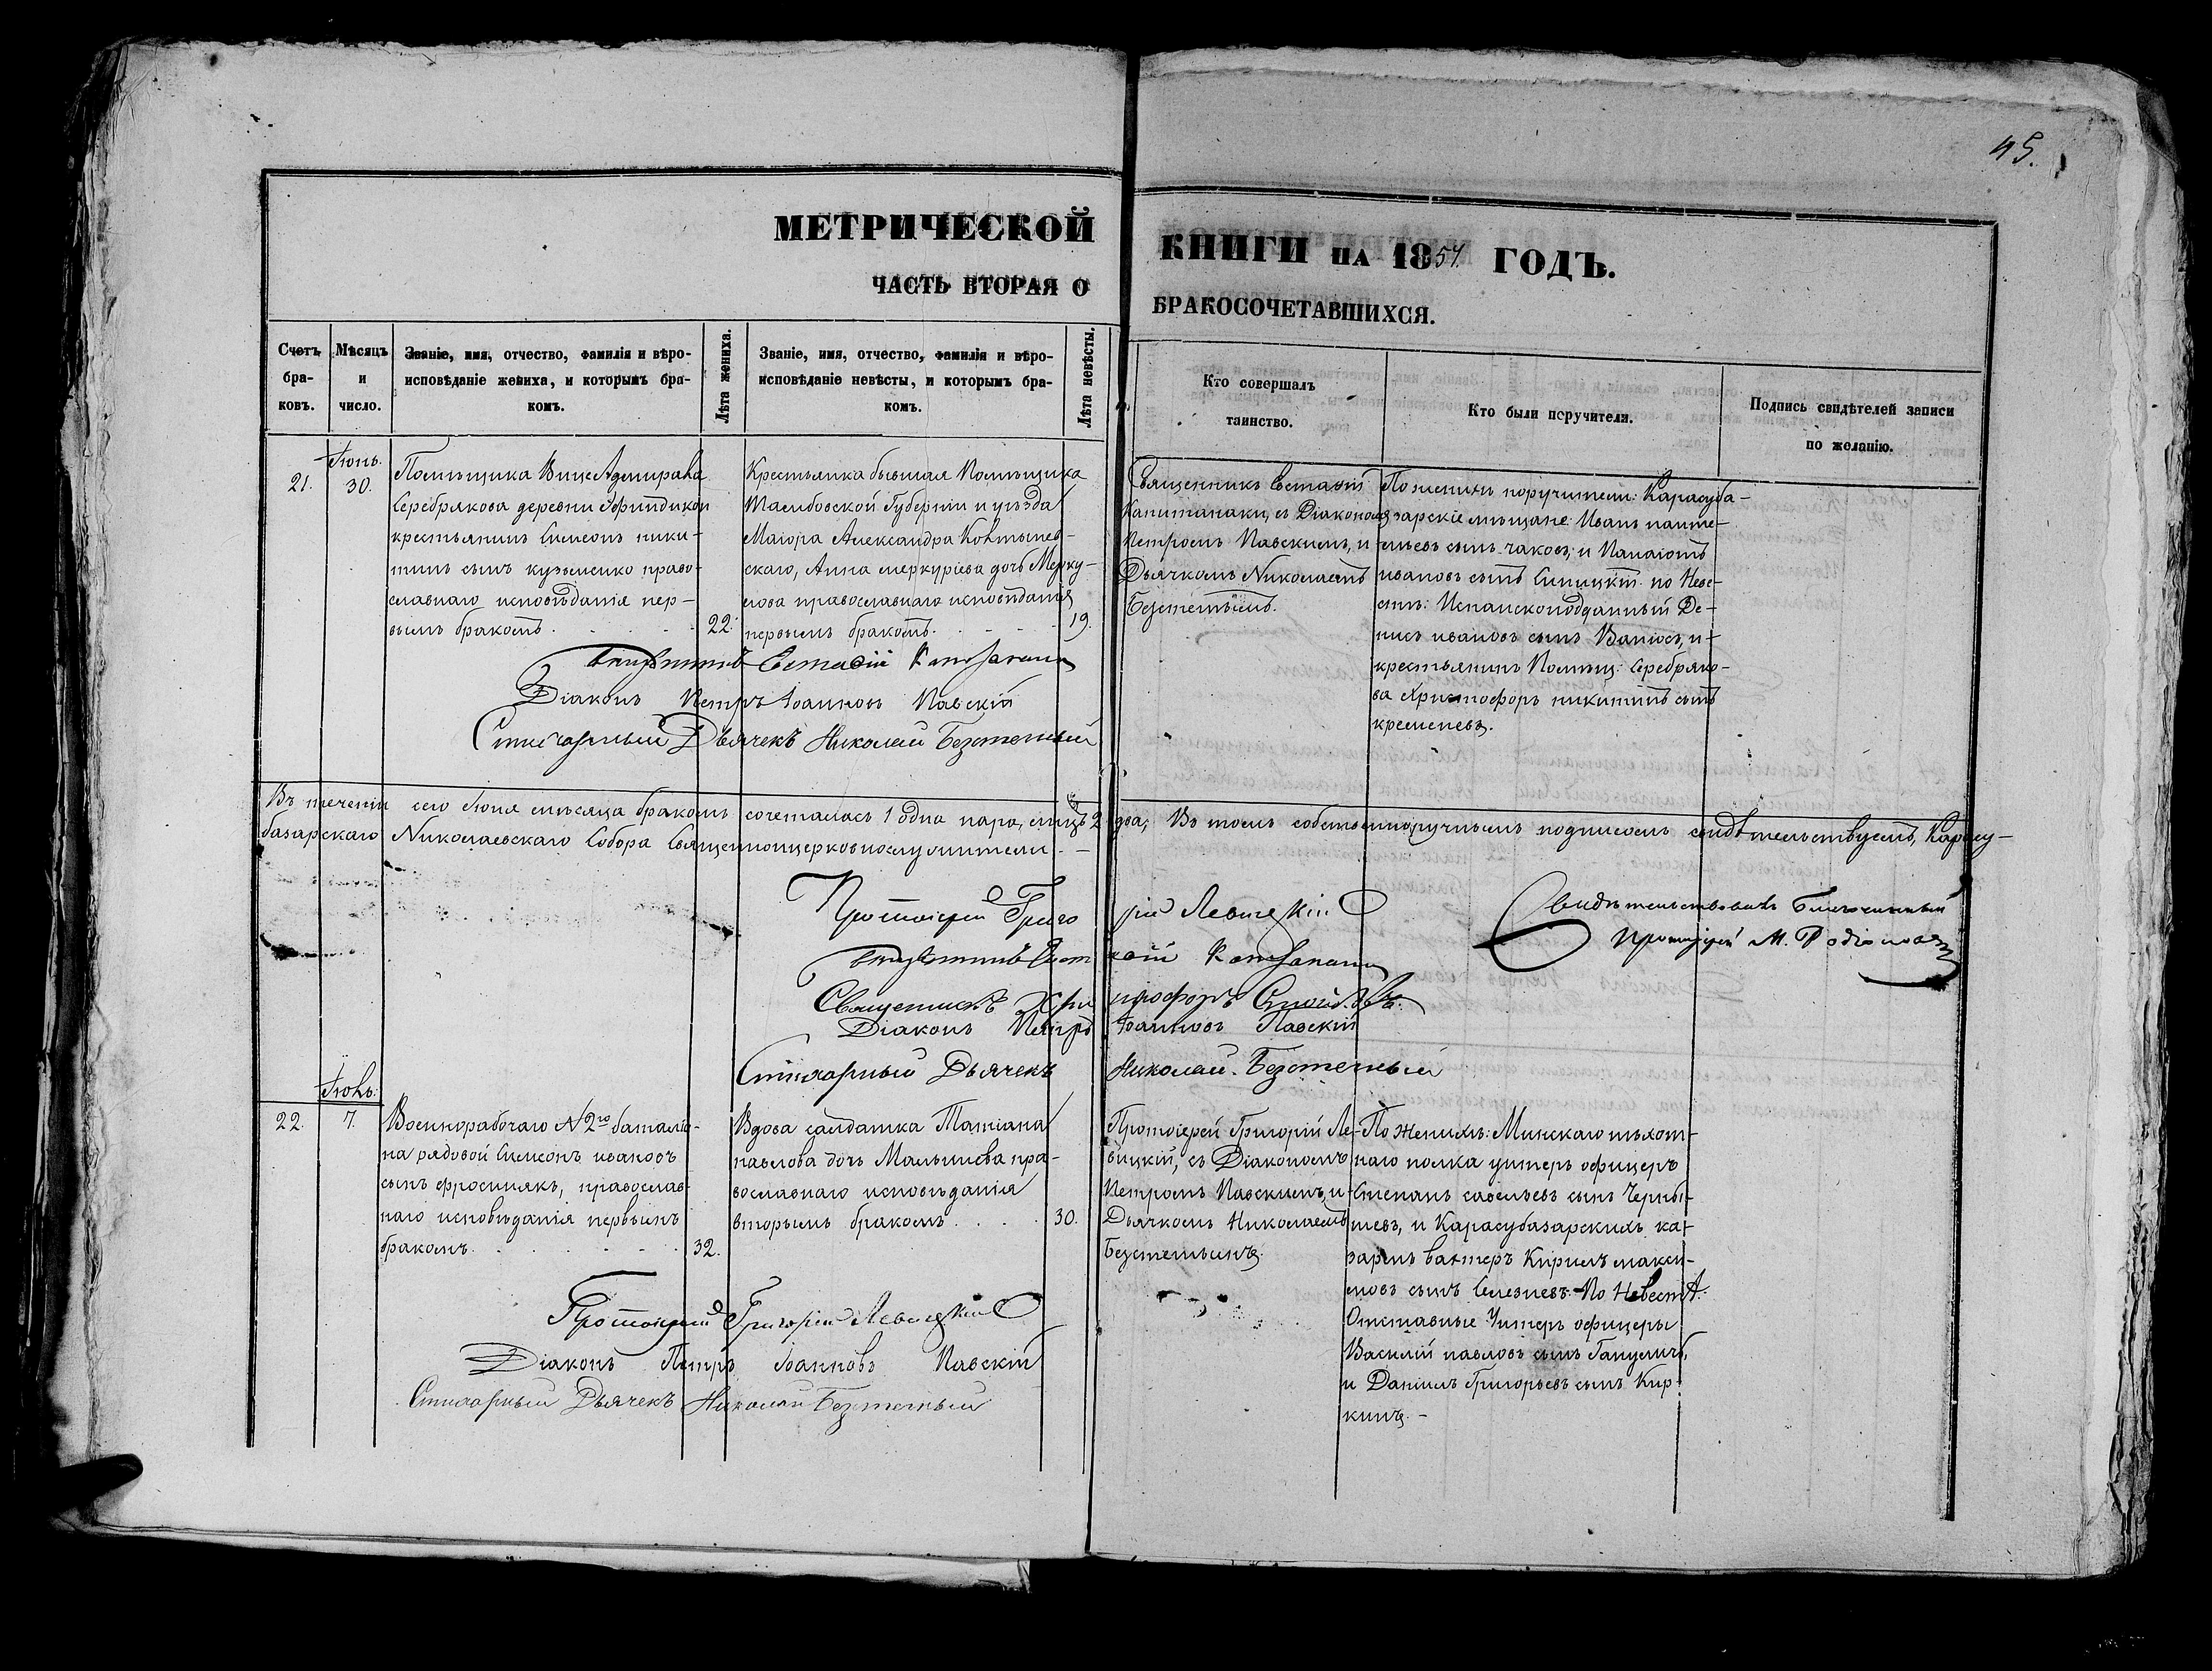 45.
МЕТРИЧЕСКОЙ КНИГИ НА 1854. ГОДЪ.
ЧАСТЬ ВТОРАЯ О БРАКОСОЧЕТАВШИХСЯ.
Счетъ бра-ковъ.
Мѣсяцъ и число.
Званіе, имя, отчество, фамилія и вѣро-
исповѣданіе жениха, и которымъ бра-
комъ.
Лѣта жениха.
Званіе, имя, отчество, фамилія и вѣро-
исповѣданіе невѣсты, и которымъ бра-
комъ.
Лѣта невѣсты.
Кто совершалъ
таинство.
Кто были поручители.
Подпись свидѣтелей записи
по желанію.
21.
Іюнь.
30.
Помѣщика Вице Адмирала
Серебрякова деревни
крестьянинъ Симеонъ ники-
тинъ сынъ кузьменко право-
славнаго исповѣданія пер-
вымъ бракомъ. 22.
Крестьянка бывшая Помѣщика
Тамбовской Губерніи и уѣзда
Маіора Александра
скаго, Анна меркуріева дочь Мерку-
лова православнаго исповѣданія
первымъ бракомъ. 19.
Священникъ Евстафій
Капитанаки, съ Діакономъ
Петромъ Павскимъ, и
Дьячкомъ Николаемъ
Безстетымъ.
По женихѣ поручители: Карасуба-
зарскіе мѣщане: Иванъ панте-
лѣевъ сынъ чаковъ; и Панаіотъ
ивановъ сынъ по Неве-
стѣ: Испанскоподданный Де-
нисъ ивановъ сынъ и
крестьянинъ Помѣщ: Серебряко-
ва Христофоръ никитинъ сынъ
кременевъ.
Священникъ Евстафій
Діаконъ Петръ Іоанновъ Павскій
Стихарный Дьячекъ Николай Безстетный
Въ теченіи сего Іюня мѣсяца бракомъ сочеталась 1 одна пара, лицъ 2 два; Въ томъ собственноручнымъ подписомъ свидѣтельствуемъ, Карасу-
базарскаго Николаевскаго Собора Священноцерковнослужители.
Протоіерей Григорій Левицкій
Свидѣтельствовалъ Благочинный
Протоіерей М. Родіоновъ
Священникъ Евстафій
Священникъ Христофоръ
Діаконъ Петръ Іоанновъ Павскій
Стихарный Дьячекъ Николай Безстетный
Іюль:
22.
7.
Военнорабочаго №2го баталіо-
на рядовой Симеонъ ивановъ
сынъ фросинякъ, православ-
наго исповѣданія первымъ
бракомъ. 32.
Вдова салдатка Татіана
павлова дочь Малышева пра-
вославнаго исповѣданія
вторымъ бракомъ. 30.
Протоіерей Григорій Ле-
вицкій, съ Діакономъ
Петромъ Павскимъ, и
Дьячкомъ Николаемъ
Безстетнымъ.
По Женихѣ: Минскаго пѣхот-
наго полка унтеръ офицеръ
Степанъ савельевъ сынъ Черны-
шевъ, и Карасубазарскихъ ка-
зармъ вахтеръ Кирилъ макси-
мовъ сынъ Селезневъ. По Невестѣ:
Отставные Унтеръ офицеры
Василій павловъ сынъ
и Даніилъ Григорьевъ сынъ Кир-
кинъ.
Протоіерей Григорій Левицкій
Діаконъ Петръ Іоанновъ Павскій
Стихарный Дьячекъ Николай Безстетный